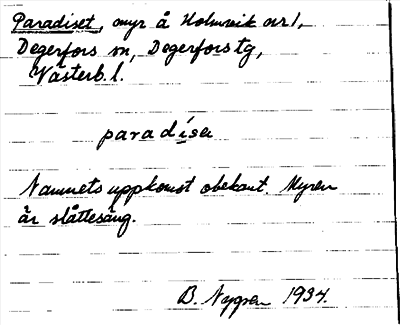 Paradiset, myr å Holmvik nr 1,
Degerfors sn, Degerfors tg,
Västerb. l.
paradí̲sα
Namnets uppkomst obekant. Myren
är slåttesäng.
B. Nygren 1934.